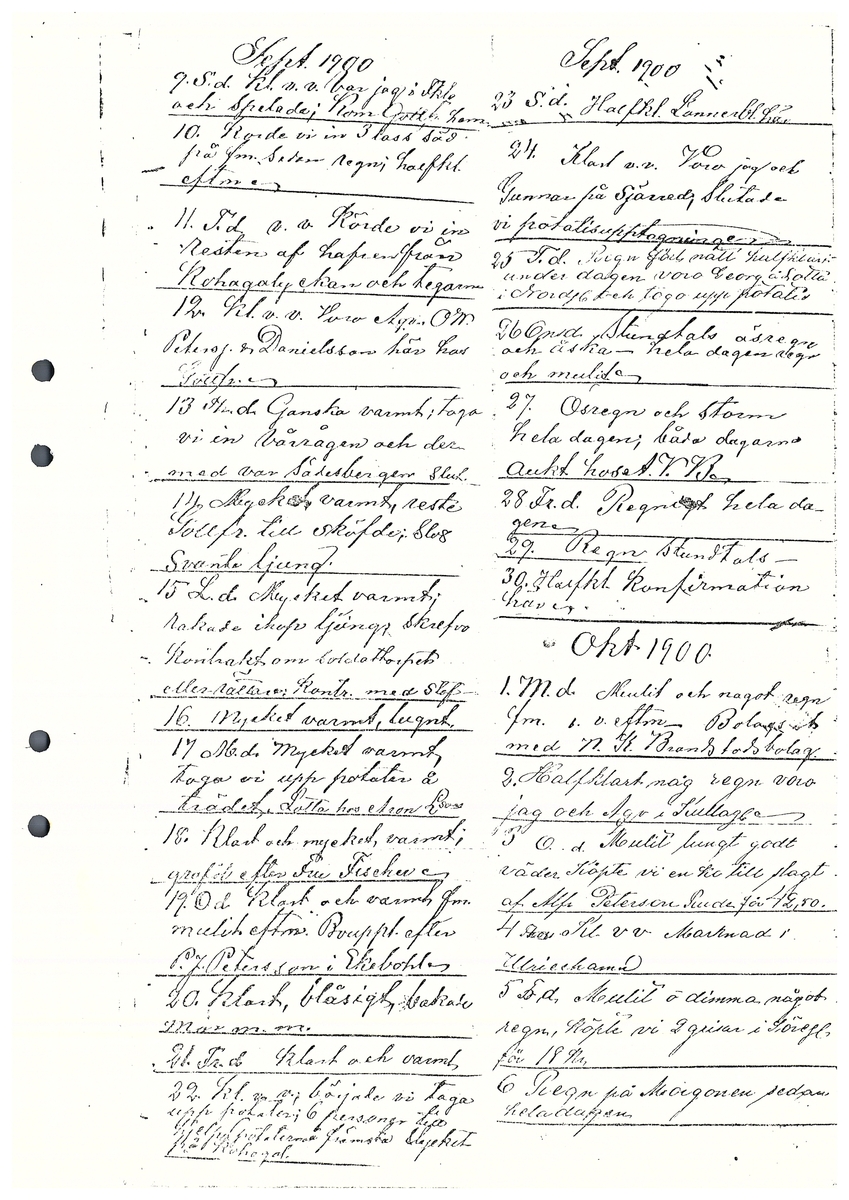 Sept. 1900
9. S.d. Kl. v.v. var jag i
och spelade; kom Gottfr. hem
10. Körde vi in 3 lass säd
på fm. sedan regn; halfkl.
eftm
11. T.d. v. v. Körde vi in
resten af hafren från
och tegarne
12. Kl. v. v. Voro Agr. O.W.
Petersj. & Danielsson här hos
Gottfr.
13 Th.d. Ganska varmt; toga
vi in vårrågen och der-
med var sädesbergen slut.
14, Mycket varmt, reste
Gottfr. till sköfde; slog
Svante ljung.
15 L.d. Mycket varmt;
rakade ihop ljung; skrefvo
Kontrakt om soldattorpet
eller rättare; Kontr. med
16. Mycket varmt, lugnt,
17 M.d. Mycket varmt,
toga vi upp potater å
trädet, Lotta hos Aron
18. Klart och mycket, varmt;
graföl efter Fru Fischer
19. Od Klart och varmt fm.
mulit eftm. Bouppt. efter
P.J. Petersson i Ekebohl
20. Klart, blåsigt, bakade
Mor m.m.
21. Fr.d Klart och varmt,
22. Kl. v. v; började vi taga
upp potater; 6 personer
potaterna främsta stycket
Sept. 1900
23 S.d. Halfkl. Lönnerbl. här
24. Klart v.v. Voro jag och
Gunnar på Sjärred; slutade
vi potatisupptagningen
25 T.d. Regn förl. natt halfklart
under dagen voro Georg & Lotta
i och togo upp potatis
26 Onsd. Stundtals ösregn
och åska — hela dagen regn
och mulit
27. Ösregn och storm
hela dagen; båda dagarne
Aukt hos
28 Fr.d. Regnigt hela da-
gen
29. Regn stundtals —
30. Halfkl Konfirmation
härv.
Okt 1900.
1. M.d. Mulit och något regn
fm. v. v. eftm Bolags
med N. K. Brandstodsbolag.
2. Halfklart någ regn voro
jag och Agr i Kullag
3 O. d. Mulit lungt godt
väder Köpte vi en ko till slagt
af Alfr Peterson för 42,50.
4 Kl. v v Marknad i
Ulricehamn
5 F.d. Mulit o dimma något
regn, köpte vi 2 grisar i
för 18 Kr
6 Regn på Morgonen sedan
hela dagen